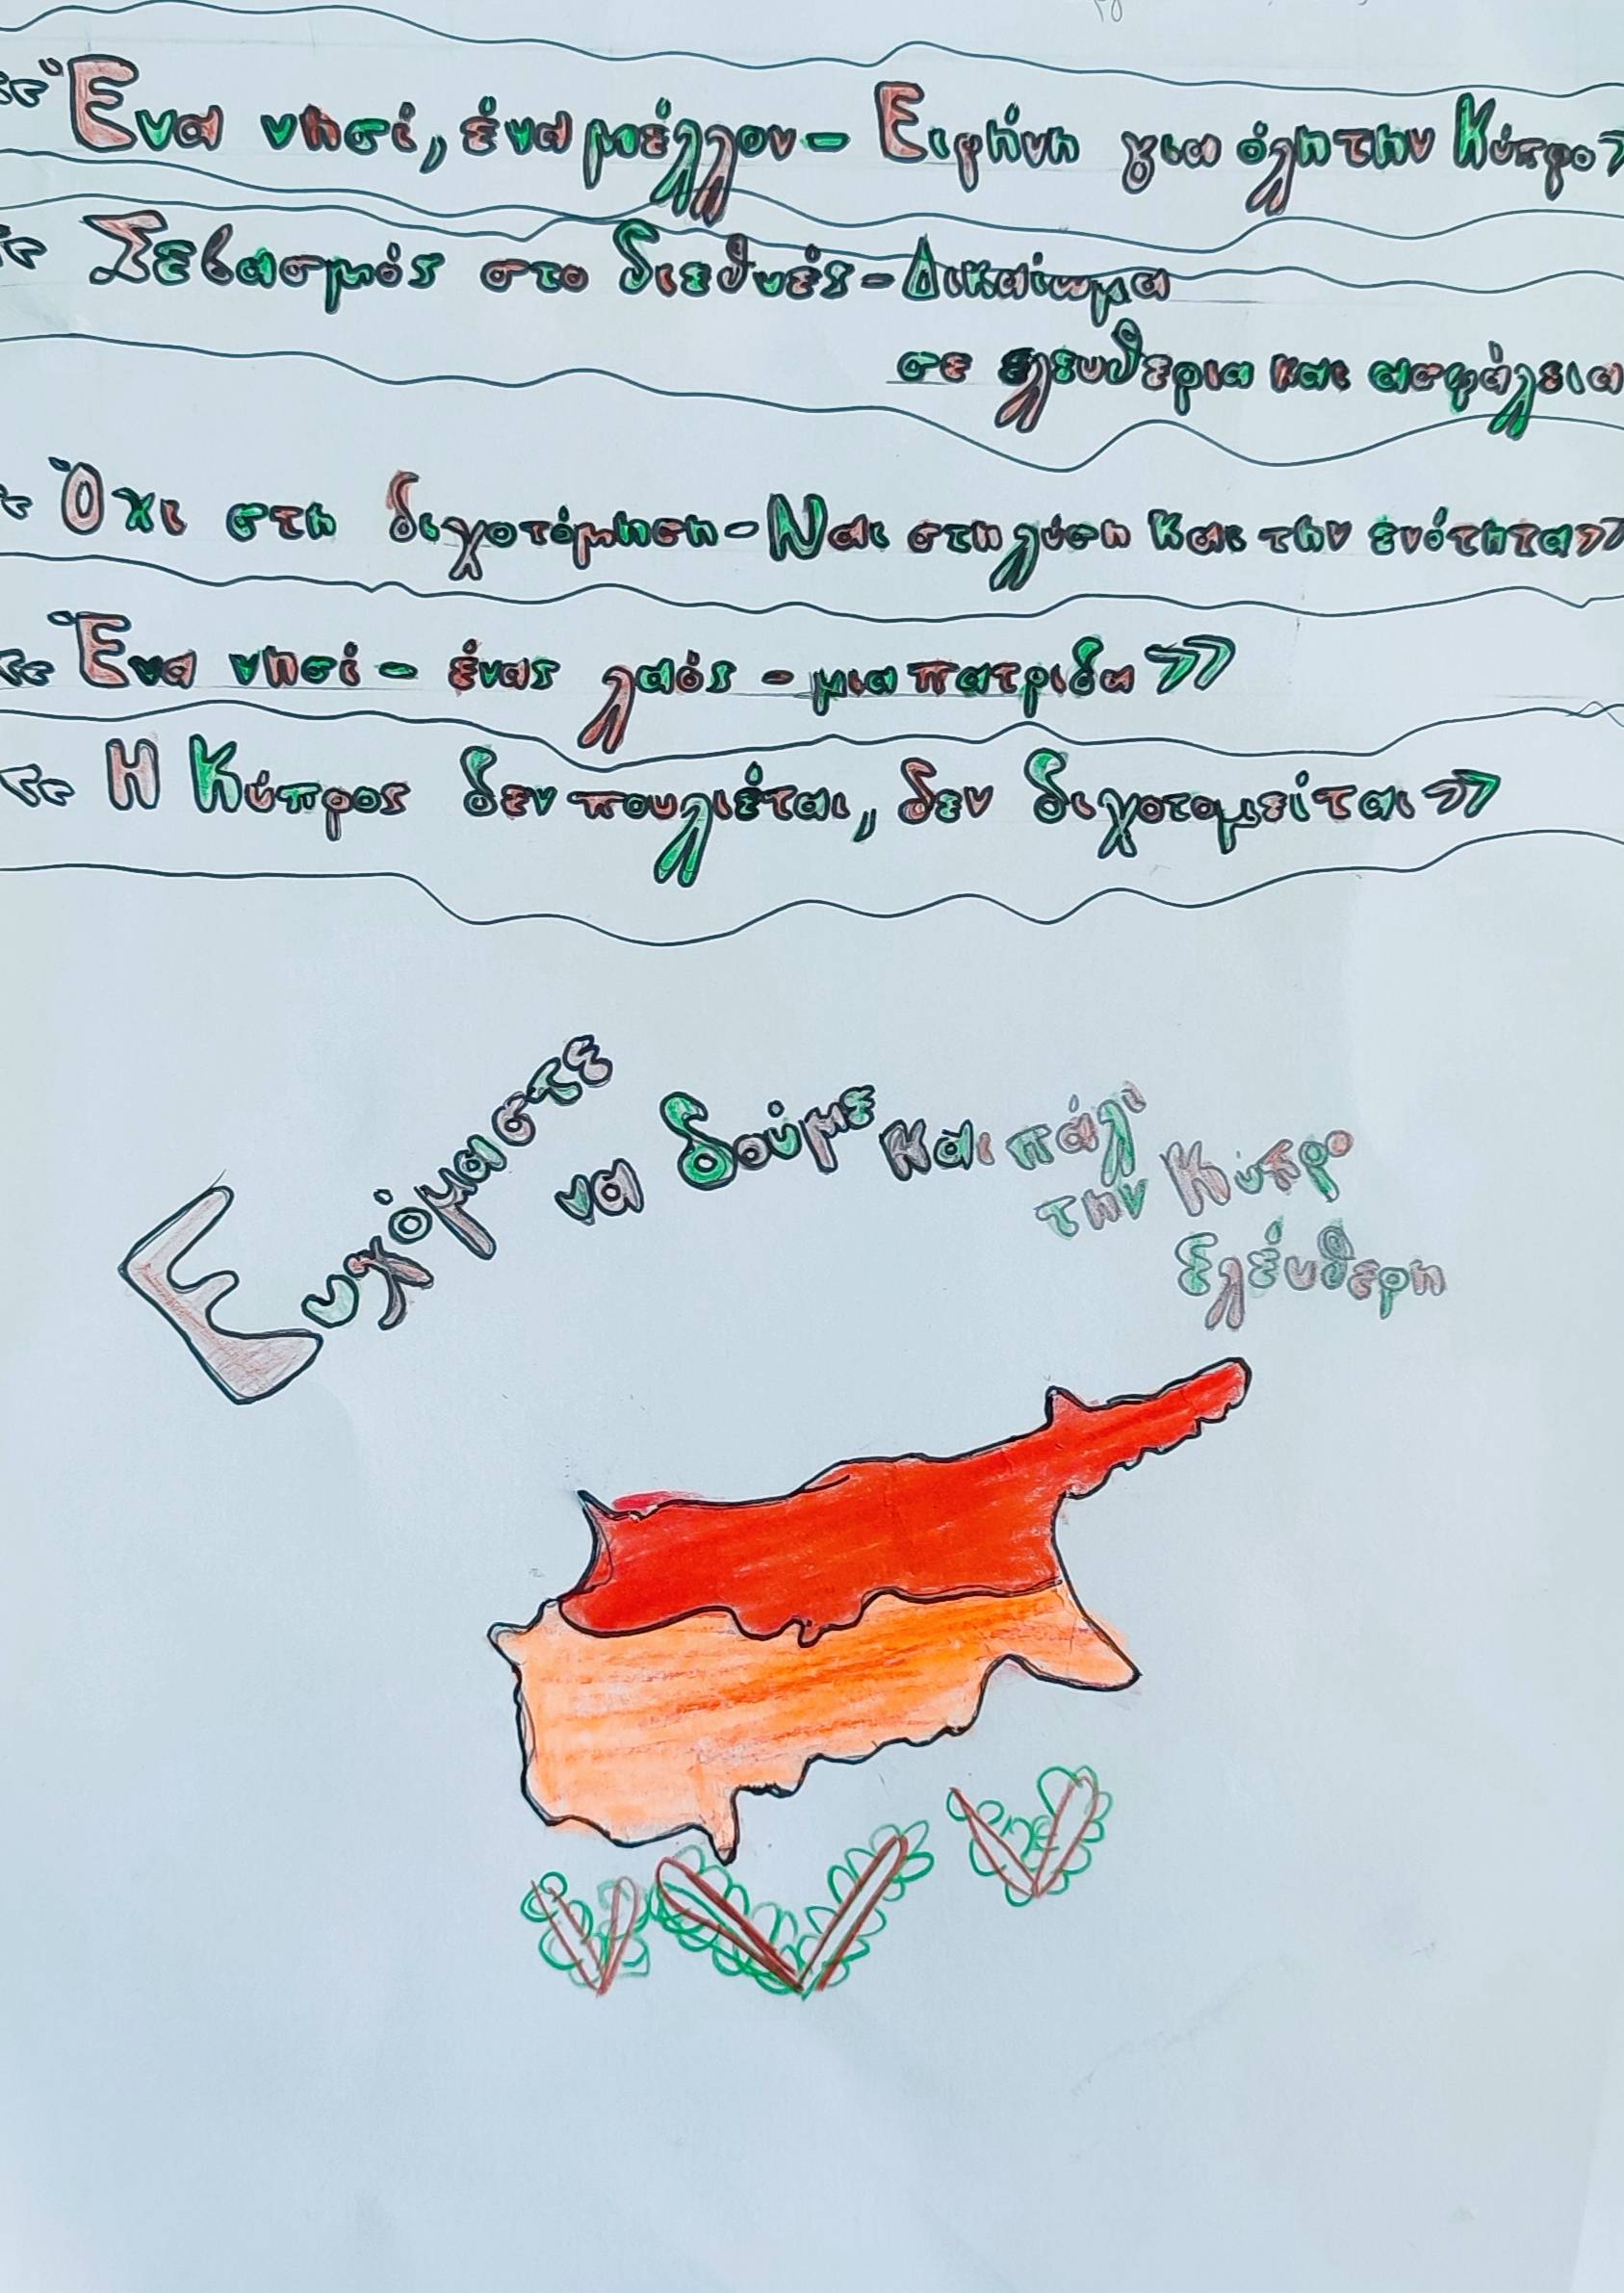 «Ένα νησί, ένα μέλλον - Ειρήνη για όλη την Κύπρο»
« Σεβασμός στο διεθνές - Δικαίωμα
σε ελευθερια και ασφάλεια
« Όχι στη διχοτόμηση - Ναι στη λύση και την ενότητα»
« Ένα νησί - ένας λαός - μια πατριδα »
« Η Κύπρος δεν πουλιέται, δεν διχοτομείται »
Ευχόμαστε να δούμε και πάλι
την Κύπρο
ελεύθερη